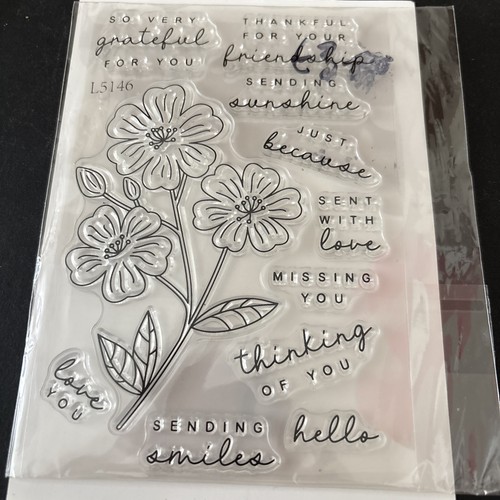 SO VERY
grateful
FOR YOU
THANKFUL
FOR YOUR
friendship
L5146
SENDING
sunshine
JUST
because
SENT
WITH
love
MISSING
YOU
thinking
OF YOU
love
YOU
SENDING
smiles
hello